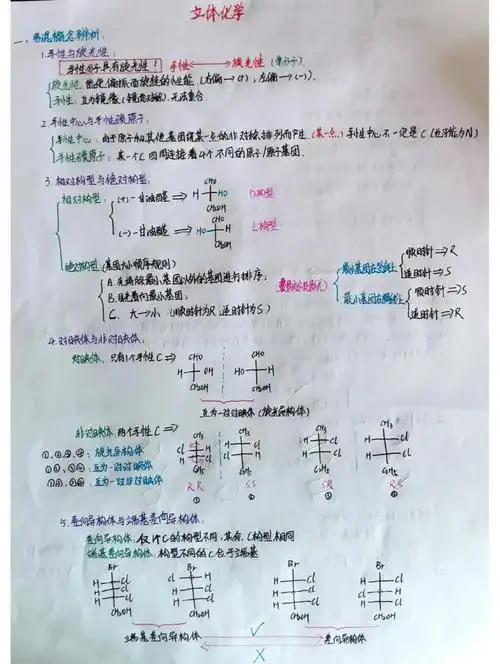 立体化学
一、易混概念辨析.
1.手性与旋光性:
手性分子具有旋光性! 手性 ⟷ 旋光性 (单分子).
旋光性: 能使偏振面旋转的性能 (右偏→(+); 左偏→(-)).
手性: 互为镜像(镜面对称), 无法重合.
2.手性中心与手性碳原子.
手性中心: 由于原子和其他基团绕某一点的非对称排列而产生 (某一点.) 手性中心不一定是C(也可能为N)
手性碳原子: 某一个C四周连接着4个不同的原子/原子基团.
3.相对构型与绝对构型.
相对构型: (+)-甘油醛 ⟹
CHO
H HO
CH₂OH
D构型
(-)-甘油醛 ⟹
CHO
HO H
CH₂OH
L构型
绝对构型 (基团大小顺序规则)
A.先将除最小基团以外的基团进行排序;
B.眼光看向最小基团;
C. 大→小. (顺时针为R, 逆时针为S)
最小基团在竖线上
顺时针→R
逆时针→S
最小基团在横线上
顺时针→S
逆时针→R
4.对映体与非对映体.
对映体. 只有1个手性C⟹
CHO
H OH
CH₂OH
CHO
HO H
CH₂OH
互为一对对映体 (旋光异构体)
非对映体. 两个手性C⟹
①,②,③,④: 旋光异构体
互为一对对映体
互为一对非对映体
CH₃ CH₃ CH₃ CH₃
C₂H₅ C₂H₅ C₂H₅ C₂H₅
RR SS SR RS
① ② ③ ④
5.差向异构体与端基差向异构体.
差向异构体: 仅1个C的构型不同, 其余C构型相同
端基差向异构体: 构型不同的C位于端基
Br Br Br Br
H Cl Cl H H Cl H Cl
CH₂OH CH₂OH CH₂OH CH₂OH
端基差向异构体 ✓ 差向异构体
X